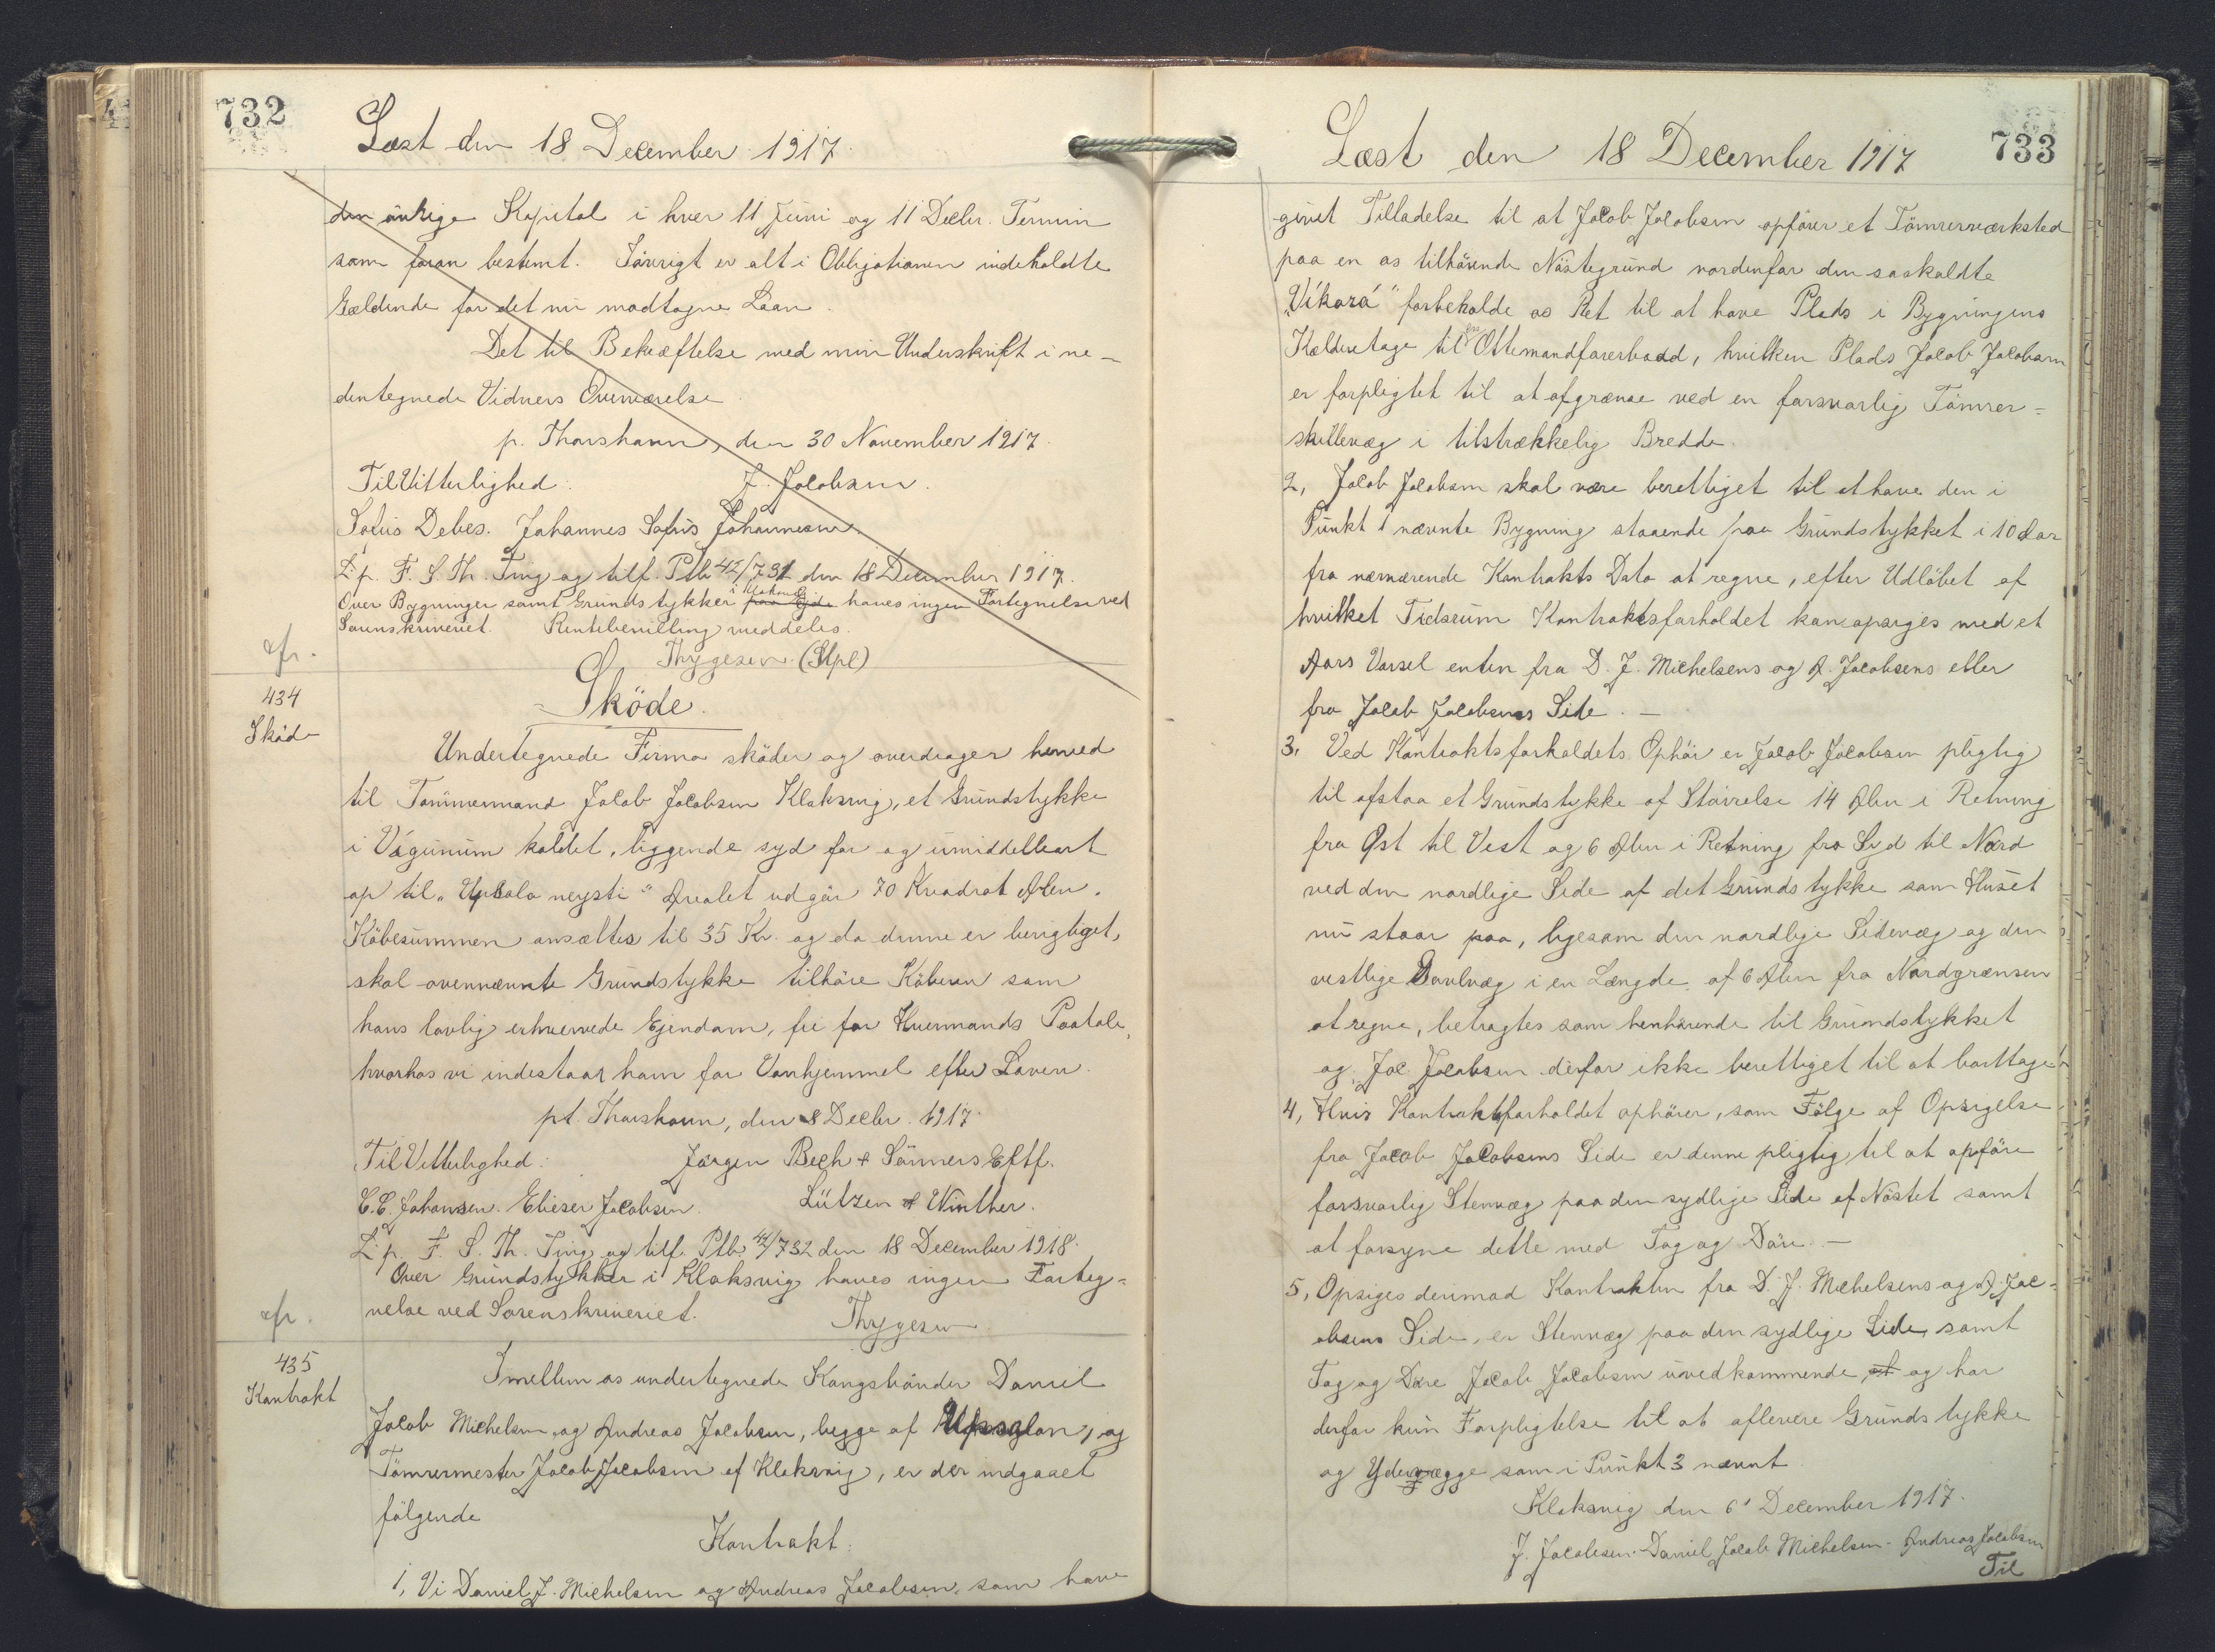 732
Læst den 18 December 1917.
den øvrige Kapital i hver 11 Juni og 11 Decbr. Termin
som foran bestemt. Iøvrigt er alt i Obligationen indeholdte
Gældende for det nu modtagne Laan.
Det til Bekræftelse med min Underskrift i ne-
dentegnede Vidners Overværelse
p. Thorshavn, den 30 November 1917.
Til Vitterlighed: J. Jacobsen.
Sofus Debes. Johannes Sofus Johannesen.
L. p. F. S. Th. Ting og tilf. Ptb. 42/731 den 18 December 1917.
Over Bygninger samt Grundstykker i Klaksvig paa Ejde haves ingen Fortegnelse ved
Sorenskriveriet. Rentebevilling meddeles.
Thygesen (Stpl)
cfr.
434
Skød-
Sköde.
Undertegnede Firma sköder og overdrager herved
til Tømmermand Jacob Jacobsen Klaksvig, et Grundstykke
i Vágunum kaldet, liggende syd for og umiddelbart
op til „Upsala neysti" Arealet udgör 70 Kvadrat Alen.
Köbesummen ansættes til 35 Kr. og da denne er berigtiget,
skal ovennævnte Grundstykke tilhöre Köberen som
hans lovlig erhvervede Ejendom, fri for Hvermands Paatale,
hvorhos vi indestaar ham for Vanhjemmel efter Loven.
pt. Thorshavn, den 8 Decbr. 1917.
Til Vitterlighed: Jörgen Bech & Sönners Eftf.
C.C. Johansen. Elieser Jacobsen. Lützen & Winther.
L. p. F. S. Th. Ting og tilf. Ptb. 42/732 den 18 December 1918.
Over Grundstykker i Klaksvig haves ingen Forteg=
nelse ved Sorenskriveriet. Thygesen
cfr.
435
Kontrakt
Imellem os undertegnede Kongsbönder Daniel
Jacob Michelsen og Andreas Jacobsen, begge af Upsalon, og
Tömrermester Jacob Jacobsen af Klaksvig, er der indgaaet
fölgende
Kontrakt:
1, Vi Daniel J. Michelsen og Andreas Jacobsen, som have
Læst den 18 December 1917
733
givet Tilladelse til at Jacob Jacobsen opförer et Tömrerværksted
paa en os tilhörende Nöstegrund nordenfor den saakaldte
„Víkará" forbeholde os Ret til at have Plads i Bygningens
Kælderetage til en Ottemandfarerbaad, hvilken Plads Jacob Jacobsen
er forpligtet til at afgrænse ved en forsvarlig Tömrer=
skillevæg i tilstrækkelig Bredde.
2, Jacob Jacobsen skal være berettiget til at have den i
Punkt 1 nævnte Bygning staaende paa Grundstykket i 10 Aar
fra nærværende Kontrakts Dato at regne, efter Udlöbet af
hvilket Tidsrum Kontraktsforholdet kan opsiges med et
Aars Varsel enten fra D. J. Michelsens og A. Jacobsens eller
fra Jacob Jacobsens Side. —
3, Ved Kontraktsforholdets Ophör er Jacob Jacobsen pligtig
til afstaa et Grundstykke af Störrelse 14 Alen i Retning
fra Øst til Vest og 6 Alen i Retning fra Syd til Nord
ved den nordlige Side af det Grundstykke som Huset
nu staar paa, ligesom den nordlige Sidevæg og den
vestlige Gavlvæg i en Længde af 6 Alen fra Nordgrænsen
at regne, betragtes som henhörende til Grundstykket
og Jac. Jacobsen derfor ikke berettiget til at borttage.
4, Hvis Kontraktsforholdet ophörer, som Fölge af Opsigelse
fra Jacob Jacobsens Side er denne pligtig til at opföre
forsvarlig Stenvæg paa den sydlige Side af Nöstet samt
at forsyne dette med Tag og Döre. —
5, Opsiges derimod Kontrakten fra D. J. Michelsens og A. Jac=
obsens Side, er Stenvæg paa den sydlige Side, samt
Tag og Döre Jacob Jacobsen uvedkommende, at og har
derfor kun Forpligtelse til at aflevere Grundstykke
og Ydervægge som i Punkt 3 nævnt.
Klaksvig den 6' December 1917.
J. Jacobsen. Daniel Jacob Michelsen. Andreas Jacobsen
Til